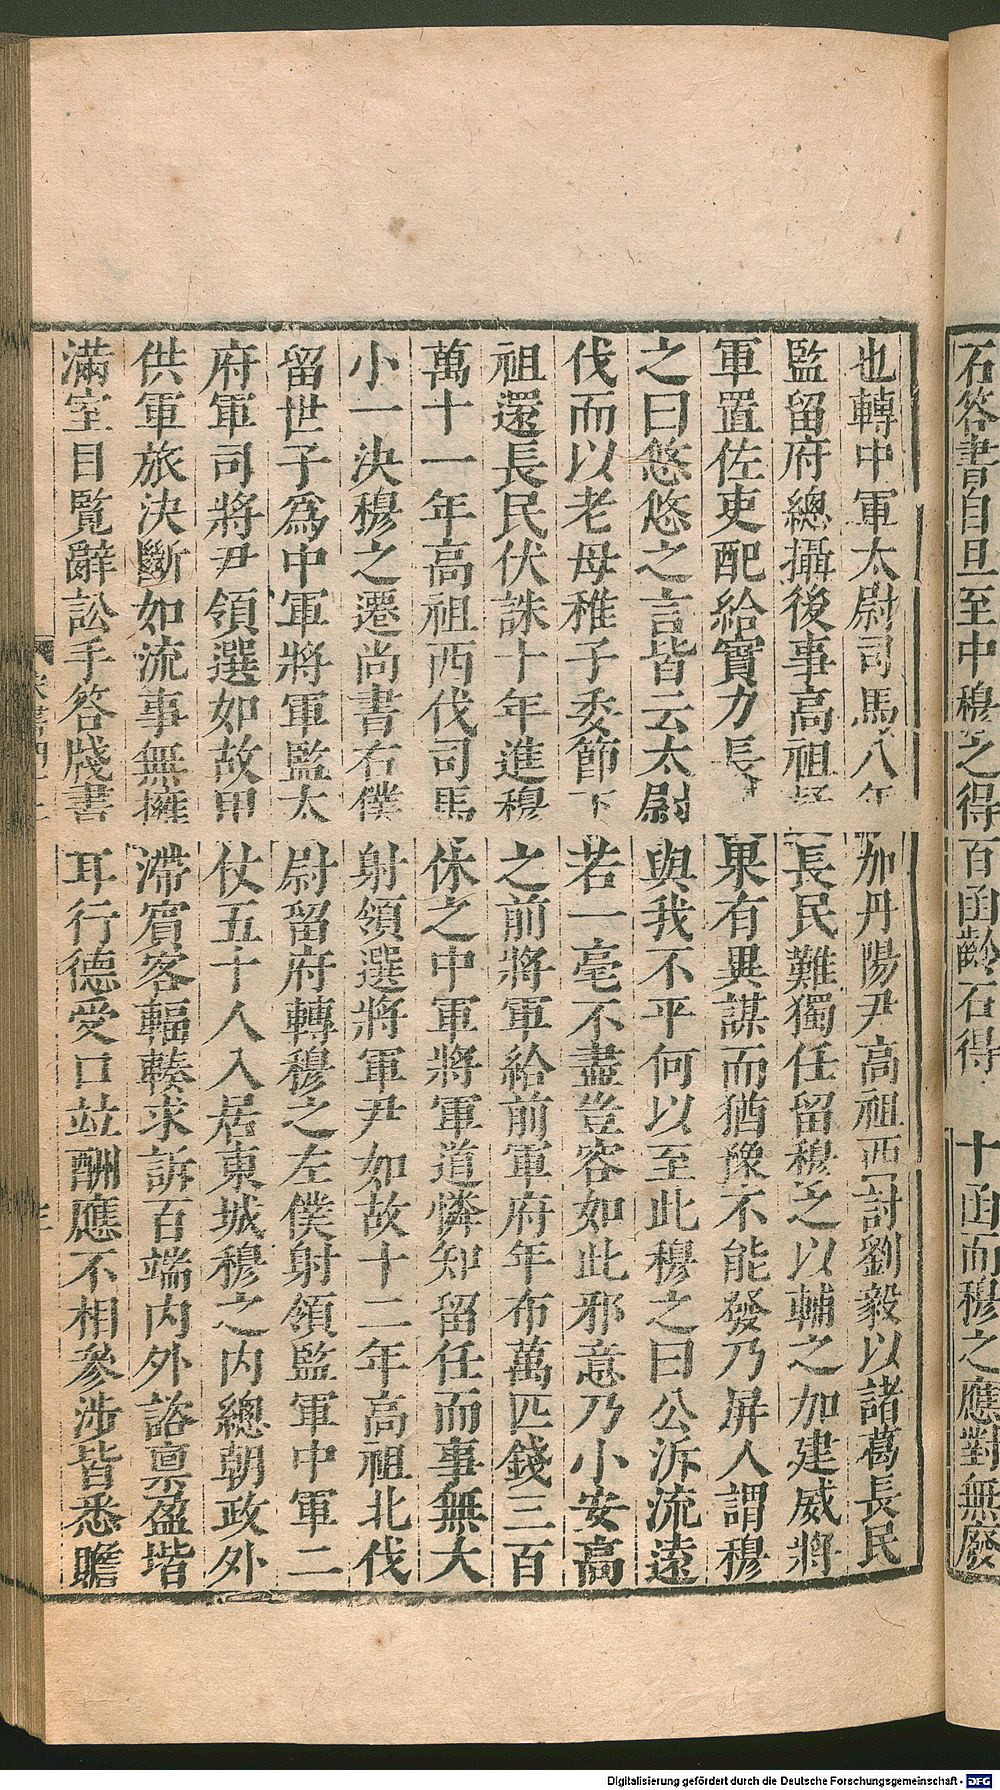 石答書自旦至中穆之得百函齡石得十函而穆之應對無廢
也轉中軍太尉司馬八年加丹陽尹高祖西討劉毅以諸葛長民
監留府總攝後事高祖疑長民難獨任留穆之以輔之加建威將
軍置佐吏配給實力長民果有異謀而猶豫不能發乃屏人謂穆
之曰悠悠之言皆云太尉與我不平何以至此穆之曰公泝流遠
伐而以老母稚子委節下若一毫不盡豈容如此邪意乃小安高
祖還長民伏誅十年進穆之前將軍給前軍府年布萬匹錢三百
萬十一年高祖西伐司馬休之中軍將軍道憐知留任而事無大
小一決穆之遷尚書右僕射領選將軍尹如故十二年高祖北伐
留世子爲中軍將軍監太尉留府轉穆之左僕射領監軍中軍二
府軍司將尹領選如故甲仗五十人入居東城穆之内總朝政外
供軍旅決斷如流事無擁滯賓客輻輳求訴百端内外諮稟盈堦
滿室目覧辭訟手答牋書耳行德受口竝酬應不相參涉皆悉贍
Digitalisierung gefördert durch die Deutsche Forschungsgemeinschaft - DFG